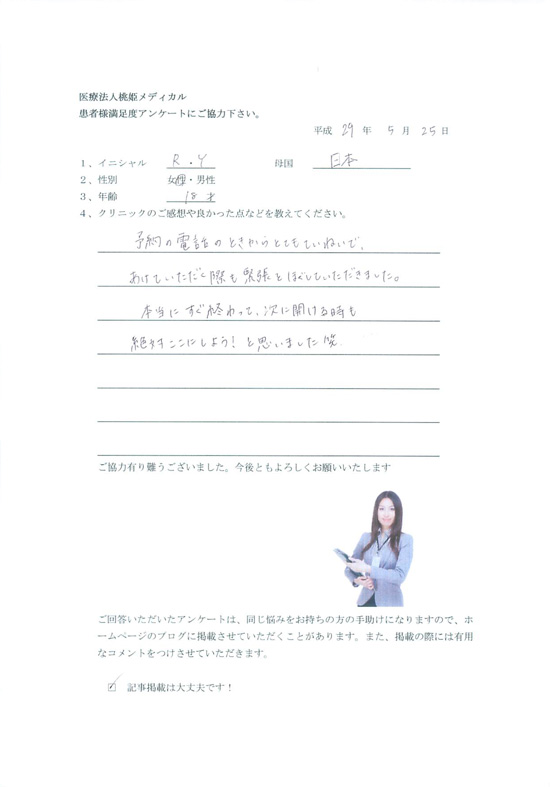 医療法人桃姫メディカル
患者様満足度アンケートにご協力下さい。
平成 29 年 5 月 25 日
1、イニシャル R.Y 母国 日本
2、性別 女性・男性
3、年齢 18 才
4、クリニックのご感想や良かった点などを教えてください。
予約の電話のときからとてもていねいで、
あけていただく際も緊張とほぐしていただきました。
本当にすぐ終わって、次に開ける時も
絶対ここにしよう!と思いました笑
ご協力有り難うございました。今後ともよろしくお願いいたします
ご回答いただいたアンケートは、同じ悩みをお持ちの方の手助けになりますので、ホ
ームページのブログに掲載させていただくことがあります。また、掲載の際には有用
なコメントをつけさせていただきます。
記事掲載は大丈夫です!